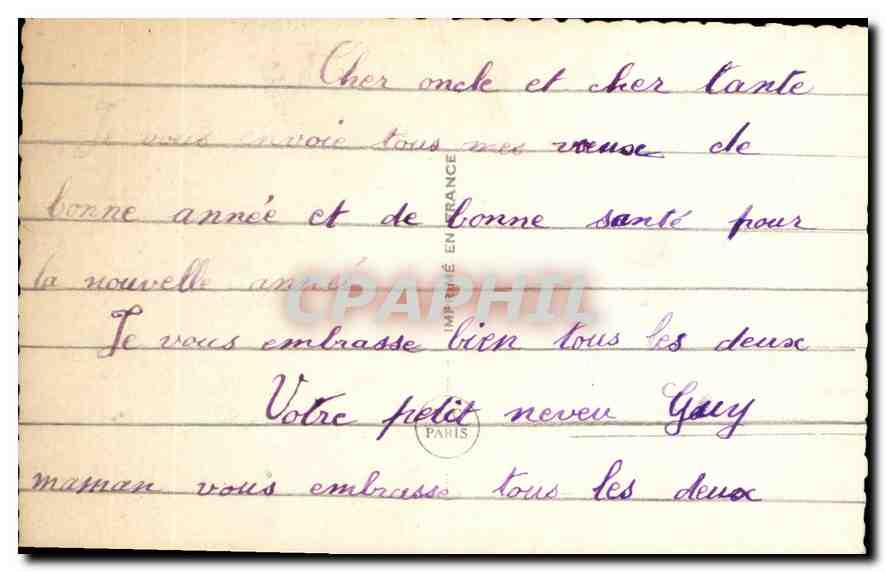 Cher oncle et cher tante
Je vous envoie tous mes vœux de
bonne année et de bonne santé pour
la nouvelle année
Je vous embrasse bien tous les deux
Votre petit neveu Guy
maman vous embrasse tous les deux
IMPRIMÉ EN FRANCE
PARIS
CPAPHIL